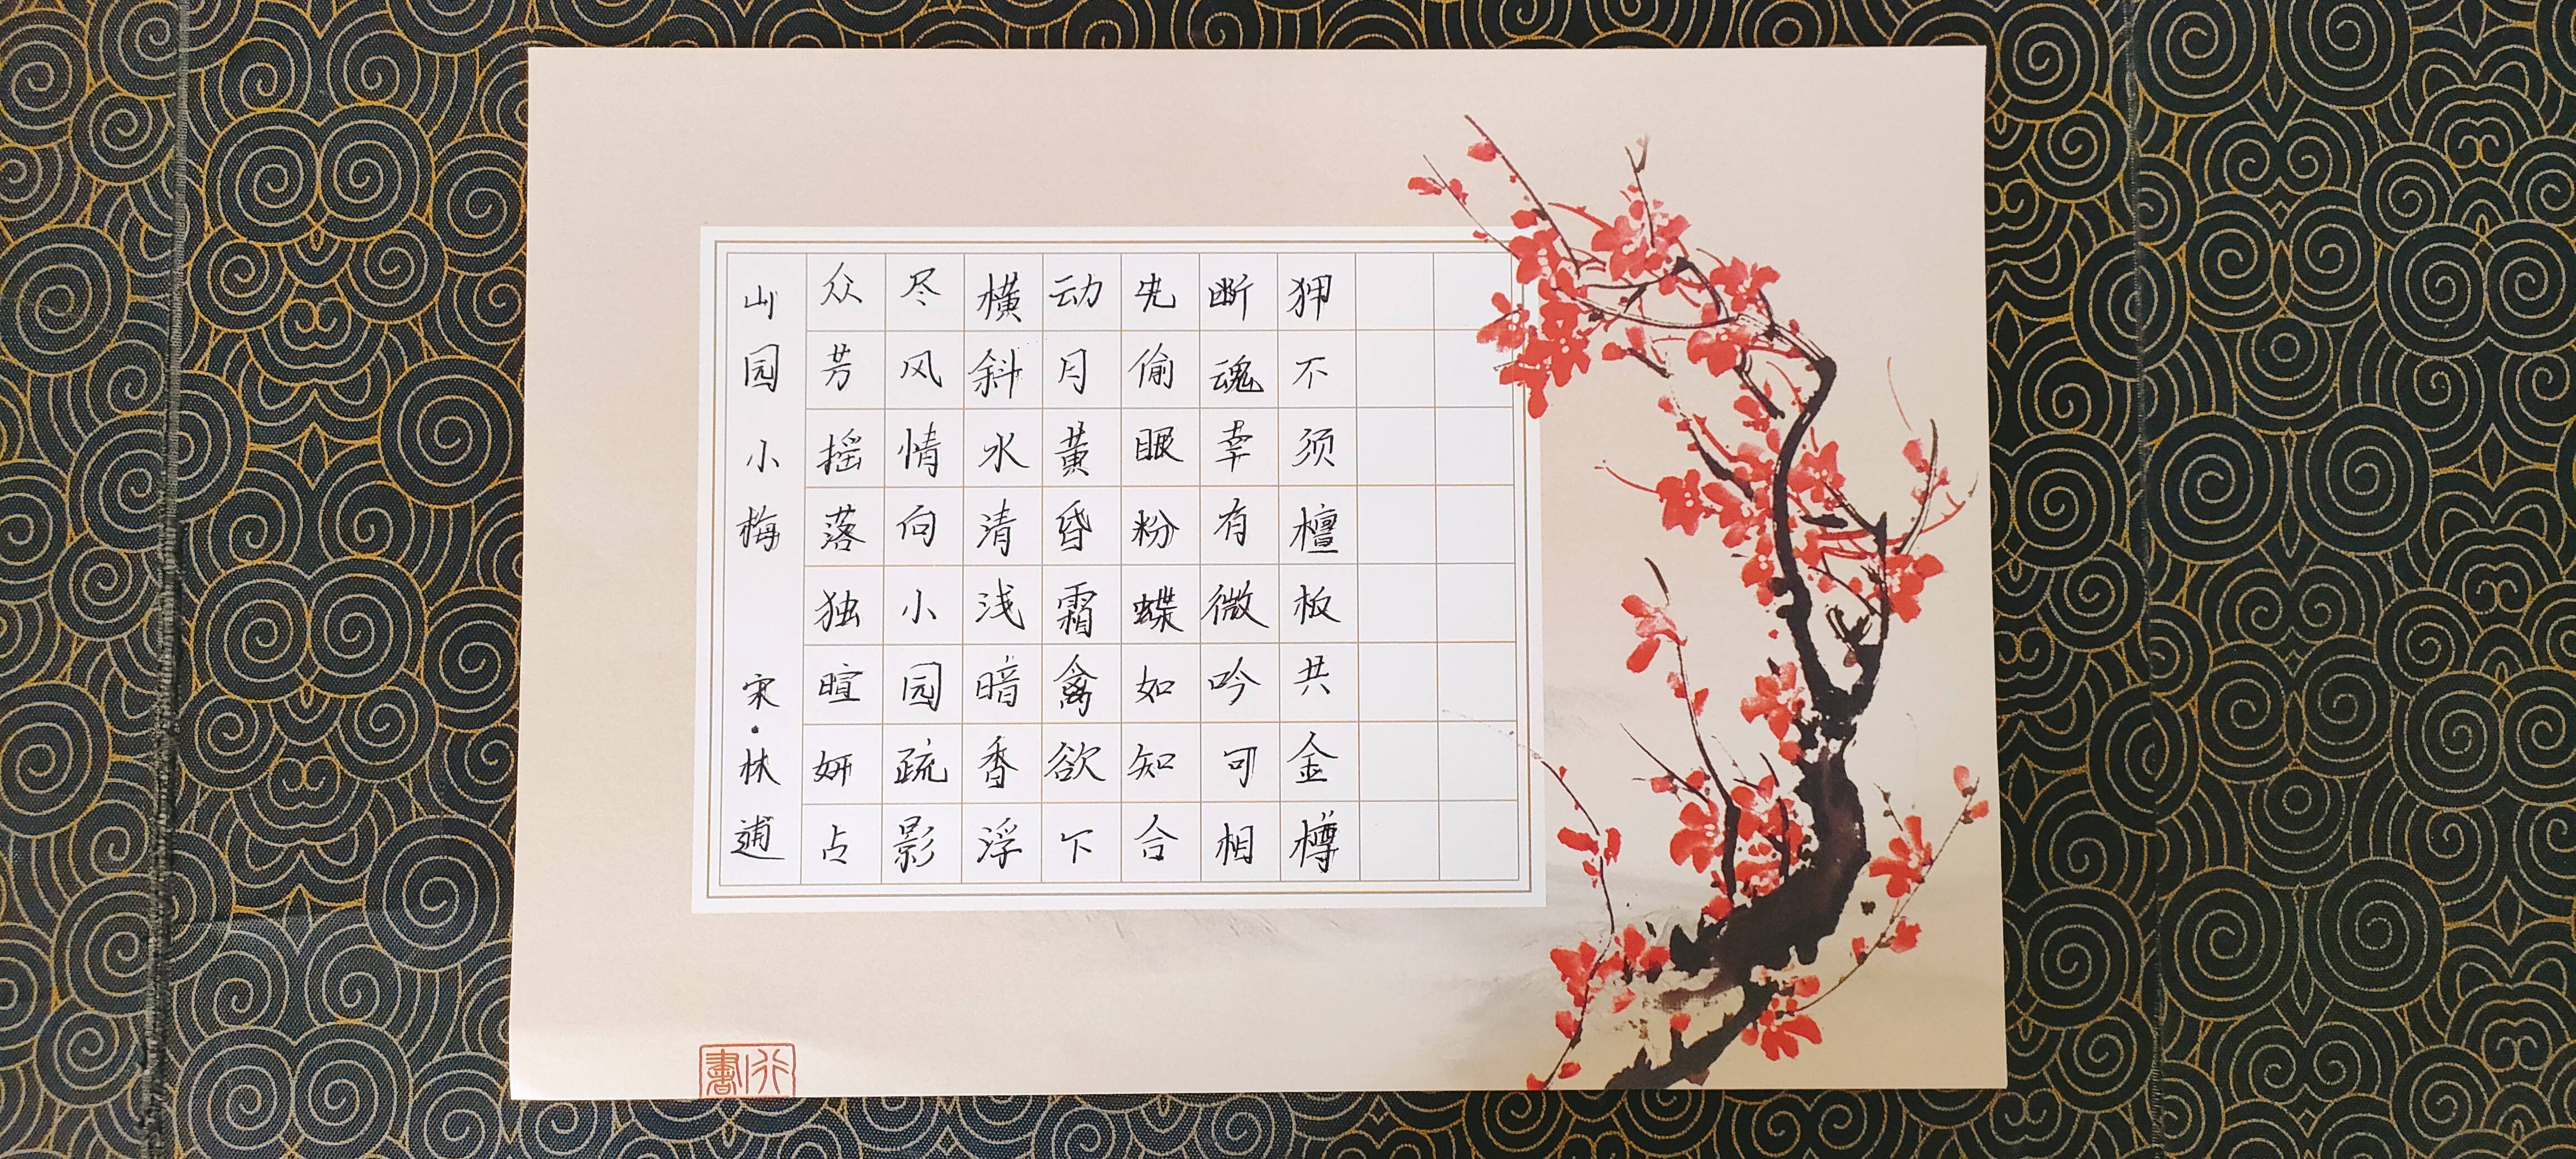 山园小梅 宋·林逋
众芳摇落独暄妍占
尽风情向小园疏影
横斜水清浅暗香浮
动月黄昏霜禽欲下
先偷眼粉蝶如知合
断魂幸有微吟可相
狎不须檀板共金樽
行書